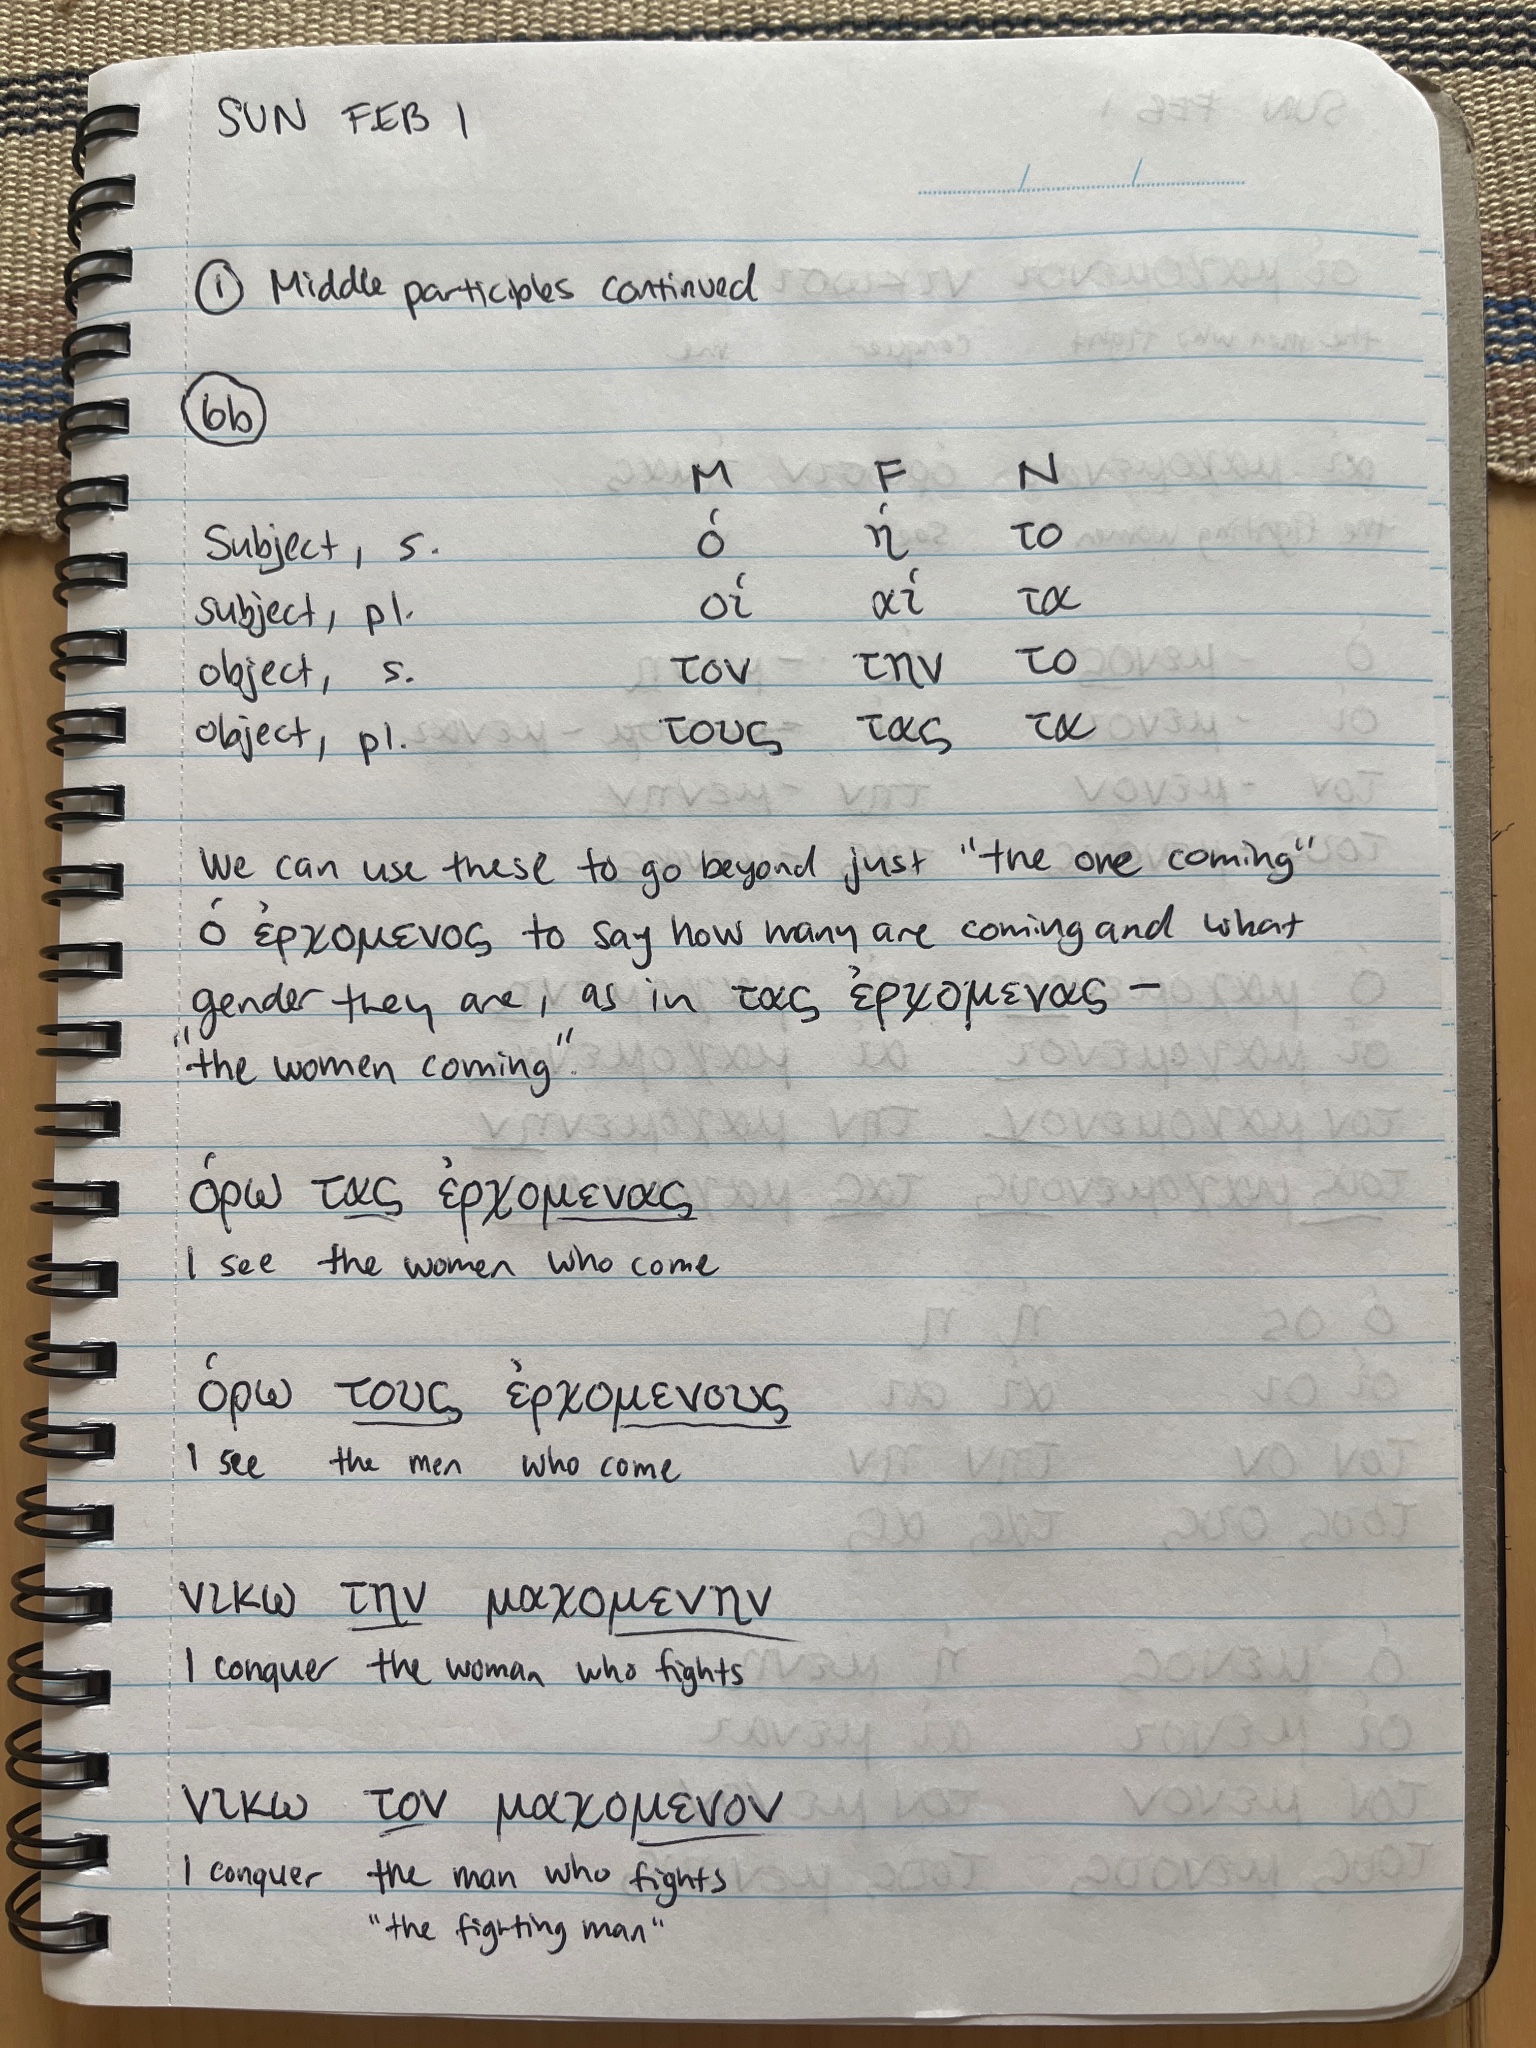 SUN FEB 1
① Middle participles continued
6b
M F N
Subject, s. ὁ ἡ το
subject, pl. οἱ αἱ τα
object, s. τον την το
object, pl. τους τας τα
We can use these to go beyond just "the one coming"
ὁ ἐρχομενος to say how many are coming and what
gender they are, as in τας ἐρχομενας –
"the women coming".
ὁρω τας ἐρχομενας
I see the women who come
ὁρω τους ἐρχομενους
I see the men who come
νικω την μαχομενην
I conquer the woman who fights
νικω τον μαχομενον
I conquer the man who fights
"the fighting man"